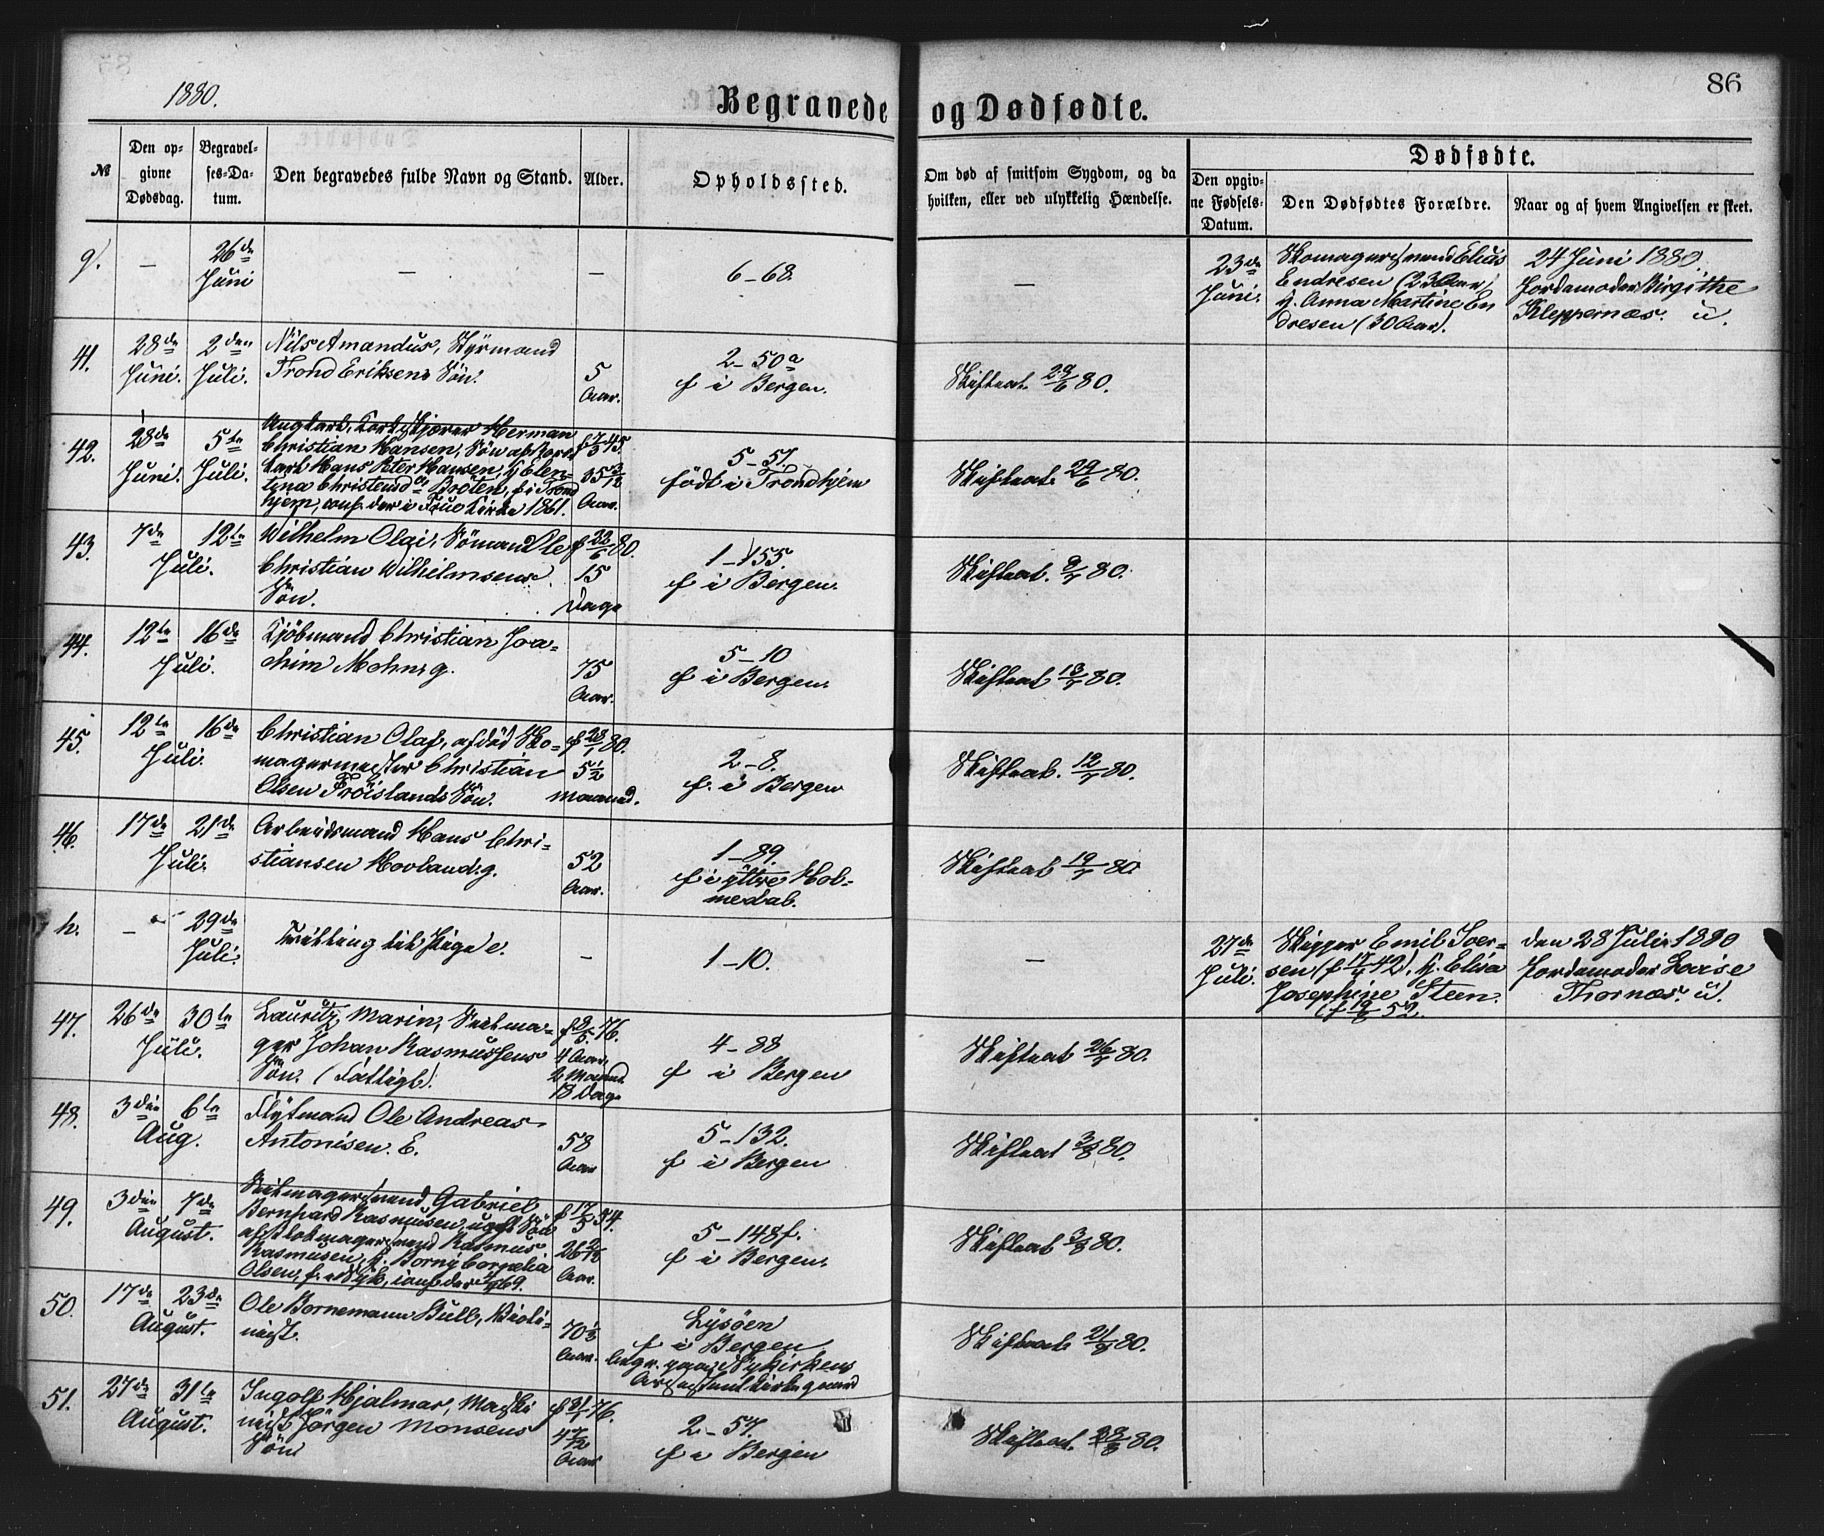 1880.
Begravede og Dødfødte.
86
№
Den opgivne Dødsdag.
Begravelses-Datum.
Den begravedes fulde Navn og Stand.
Alder.
Opholdssted.
Om død af smitsom Sygdom, og da hvilken, eller ved ulykkelig Hændelse.
Dødfødte.
Den opgivne Fødsels-Datum.
Den Dødfødtes Forældre.
Naar og af hvem Angivelsen er skeet.
g.
—
26de Juni
—
—
6-68.
—
23de Juni.
Skomagersvend Elius
Endresen (23 Aar)
H. Anna Martine En
dresen (30 Aar).
24 Juni 1880
Jordemoder Birgithe
Kleppernæs. u.
41.
28de Juni.
2den Juli.
Nils Amandus, Styrmand
Trond Eriksens Søn.
5 Aar.
2-50a
f i Bergen.
Skifteat 29/6 80.
42.
28de Juni.
5te Juli.
Herman
Christian Hansen, Søn af
Hans Peter Hansen,
Christensd. Bröten, f. i Trond
hjem, conf. der i Frue Kirke 1861.
35 3/12 Aar.
5-57.
født i Trondhjem
Skifteat. 29/6 80.
43.
7de
12te
Juli.
Wilhelm Olai, Sömand Ole
Christian Wilhelmsens
Søn.
f 22/6 80.
15
Dage
1-155.
f i Bergen.
Skifteat. 9/7 80.
44.
12te
16de
Juli.
Kjöbmand Christian Joa-
chim Mohn. g.
75
Aar.
5-10
f i Bergen.
Skifteat 13/7 80.
45.
12te
16de
Juli.
Christian Olaf, afdød Sko-
magermester Christian
Olsen Fröislands Søn.
f 28/1 80.
5 1/2
maaned.
2-8.
f. i Bergen
Skifteat. 12/7 80.
46.
17de
21de
Juli.
Arbeidsmand Hans Chri-
stiansen Hovland. g.
52
Aar.
1-89.
f i yttre Hol-
medal.
Skifteat 19/7 80.
h.
—
29de
Juli.
Tvilling til Pige e.
—
1-10.
—
27de
Juli.
Skipper Emil Iver-
sen (f 17/4 42), H. Elisa
Josephine Steen.
(f 19/8 52.
den 28 Juli 1880
Jordemoder Lovise
Thornæs. u.
47.
26de
30te
Juli.
Lauritz Marin, Seilma-
ger Johan Rasmussens
Søn. (Fattigb).
f 8/5 76.
4 Aar
2 Maand.
18 Dage
4-88
f i Bergen
Skifteat 26/7 80.
48.
3die
6te
Aug.
Flytmand Ole Andreas
Antonisen. E.
58
Aar
5-132.
f i Bergen
Skifteat 3/8 80.
49.
3die
7de
August.
Gabriel
Bernhard Rasmusen, ugift Søn
Rasmus
Rasmusen, H. Borny Cornelia
Olsen,
f 17/5 54.
26 2/12
Aar.
5-148f.
f i Bergen.
Skifteat 3/8 80.
50.
17de
23de
August.
Ole Bornemann Bull, Violi-
nist.
70 1/2
Aar.
Lysöen
f i Bergen
begr. paa Nykirkens
Assistentkirkegaard
Skifteat 21/8 80.
51.
27de
31te
August.
Ingolf Hjalmar, Maski
nist Jørgen Monsens
Søn
f 21/1 76.
4 7/12
Aar
2-57.
f i Bergen
Skifteat. 28/8 80.